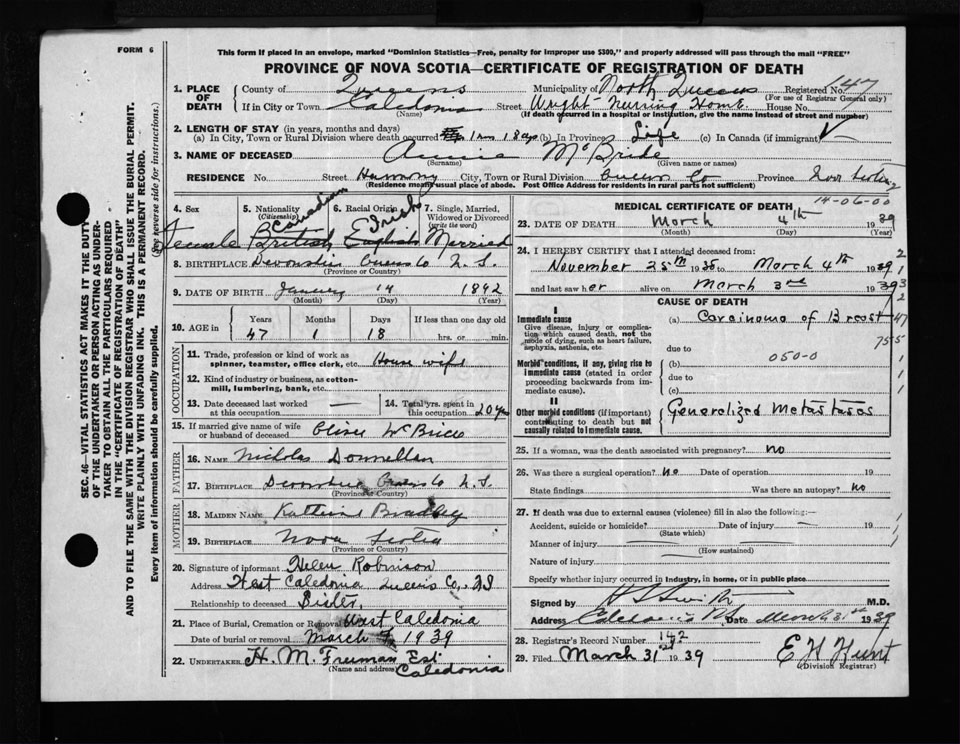 FORM 6
This form if placed in an envelope, marked "Dominion Statistics—Free, penalty for improper use $300," and properly addressed will pass through the mail "FREE"
PROVINCE OF NOVA SCOTIA—CERTIFICATE OF REGISTRATION OF DEATH
1. PLACE OF DEATH
County of Queens Municipality of North Queens Registered No. 147
(For use of Registrar General only)
If in City or Town Caledonia Street Wright Nursing Home House No.
(Name) (If death occurred in a hospital or institution, give the name instead of street and number)
2. LENGTH OF STAY (in years, months and days)
(a) In City, Town or Rural Division where death occurred (b) In Province Life (c) In Canada (if immigrant)
3. NAME OF DECEASED Annie McBride
(Surname) (Given name or names)
RESIDENCE No. Street Harmony City, Town or Rural Division Queens Co Province Nova Scotia
(Residence means usual place of abode. Post Office Address for residents in rural parts not sufficient)
4. Sex
Female
5. Nationality (Citizenship)
Canadian
British
6. Racial Origin
Irish
English
7. Single, Married, Widowed or Divorced (write the word)
Married
8. BIRTHPLACE Devonshire Queens Co N.S.
(Province or Country)
9. DATE OF BIRTH January 14 1892
(Month) (Day) (Year)
10. AGE in
Years Months Days If less than one day old
47 1 18 hrs. or min.
OCCUPATION
11. Trade, profession or kind of work as spinner, teamster, office clerk, etc. House wife
12. Kind of industry or business, as cotton-mill, lumbering, bank, etc.
13. Date deceased last worked at this occupation —
14. Total yrs. spent in this occupation 20 yrs
15. If married give name of wife or husband of deceased Oliver McBride
FATHER
16. NAME Nicholas Donnellan
17. BIRTHPLACE Devonshire Queens Co N.S.
(Province or Country)
MOTHER
18. MAIDEN NAME Katherine Bradley
19. BIRTHPLACE Nova Scotia
(Province or Country)
20. Signature of informant Helen Robinson
Address West Caledonia Queens Co, NS
Relationship to deceased Sister
21. Place of Burial, Cremation or Removal West Caledonia
Date of burial or removal March 1939
22. UNDERTAKER H. M. Freeman Est
(Name and address) Caledonia
MEDICAL CERTIFICATE OF DEATH
14-06-00
23. DATE OF DEATH March 4th 1939
(Month) (Day) (Year)
24. I HEREBY CERTIFY that I attended deceased from:
November 25th 1938 to March 4th 1939
and last saw her alive on March 3rd 1939
CAUSE OF DEATH
I
Immediate cause
Give disease, injury or complication which caused death, not the mode of dying, such as heart failure, asphyxia, asthenia, etc.
(a) Carcinoma of Breast
due to
Morbid conditions, if any, giving rise to immediate cause (stated in order proceeding backwards from immediate cause).
050-0
(b)
due to
(c)
II
Other morbid conditions (if important) contributing to death but not causally related to immediate cause.
Generalized Metastases
25. If a woman, was the death associated with pregnancy? no
26. Was there a surgical operation? no Date of operation 19
State findings Was there an autopsy? no
27. If death was due to external causes (violence) fill in also the following:—
Accident, suicide or homicide? Date of injury — 19
(State which)
Manner of injury
(How sustained)
Nature of injury
Specify whether injury occurred in industry, in home, or in public place
Signed by M.D.
Address Caledonia NS Date March 31st 1939
28. Registrar's Record Number 142
29. Filed March 31st 1939 E H Hunt
(Division Registrar)
SEC. 46—VITAL STATISTICS ACT MAKES IT THE DUTY
OF THE UNDERTAKER OR PERSON ACTING AS UNDER-
TAKER TO OBTAIN ALL THE PARTICULARS REQUIRED
IN THE "CERTIFICATE OF REGISTRATION OF DEATH"
AND TO FILE THE SAME WITH THE DIVISION REGISTRAR WHO SHALL ISSUE THE BURIAL PERMIT.
WRITE PLAINLY WITH UNFADING INK. THIS IS A PERMANENT RECORD.
Every item of information should be carefully supplied. (See reverse side for instructions.)